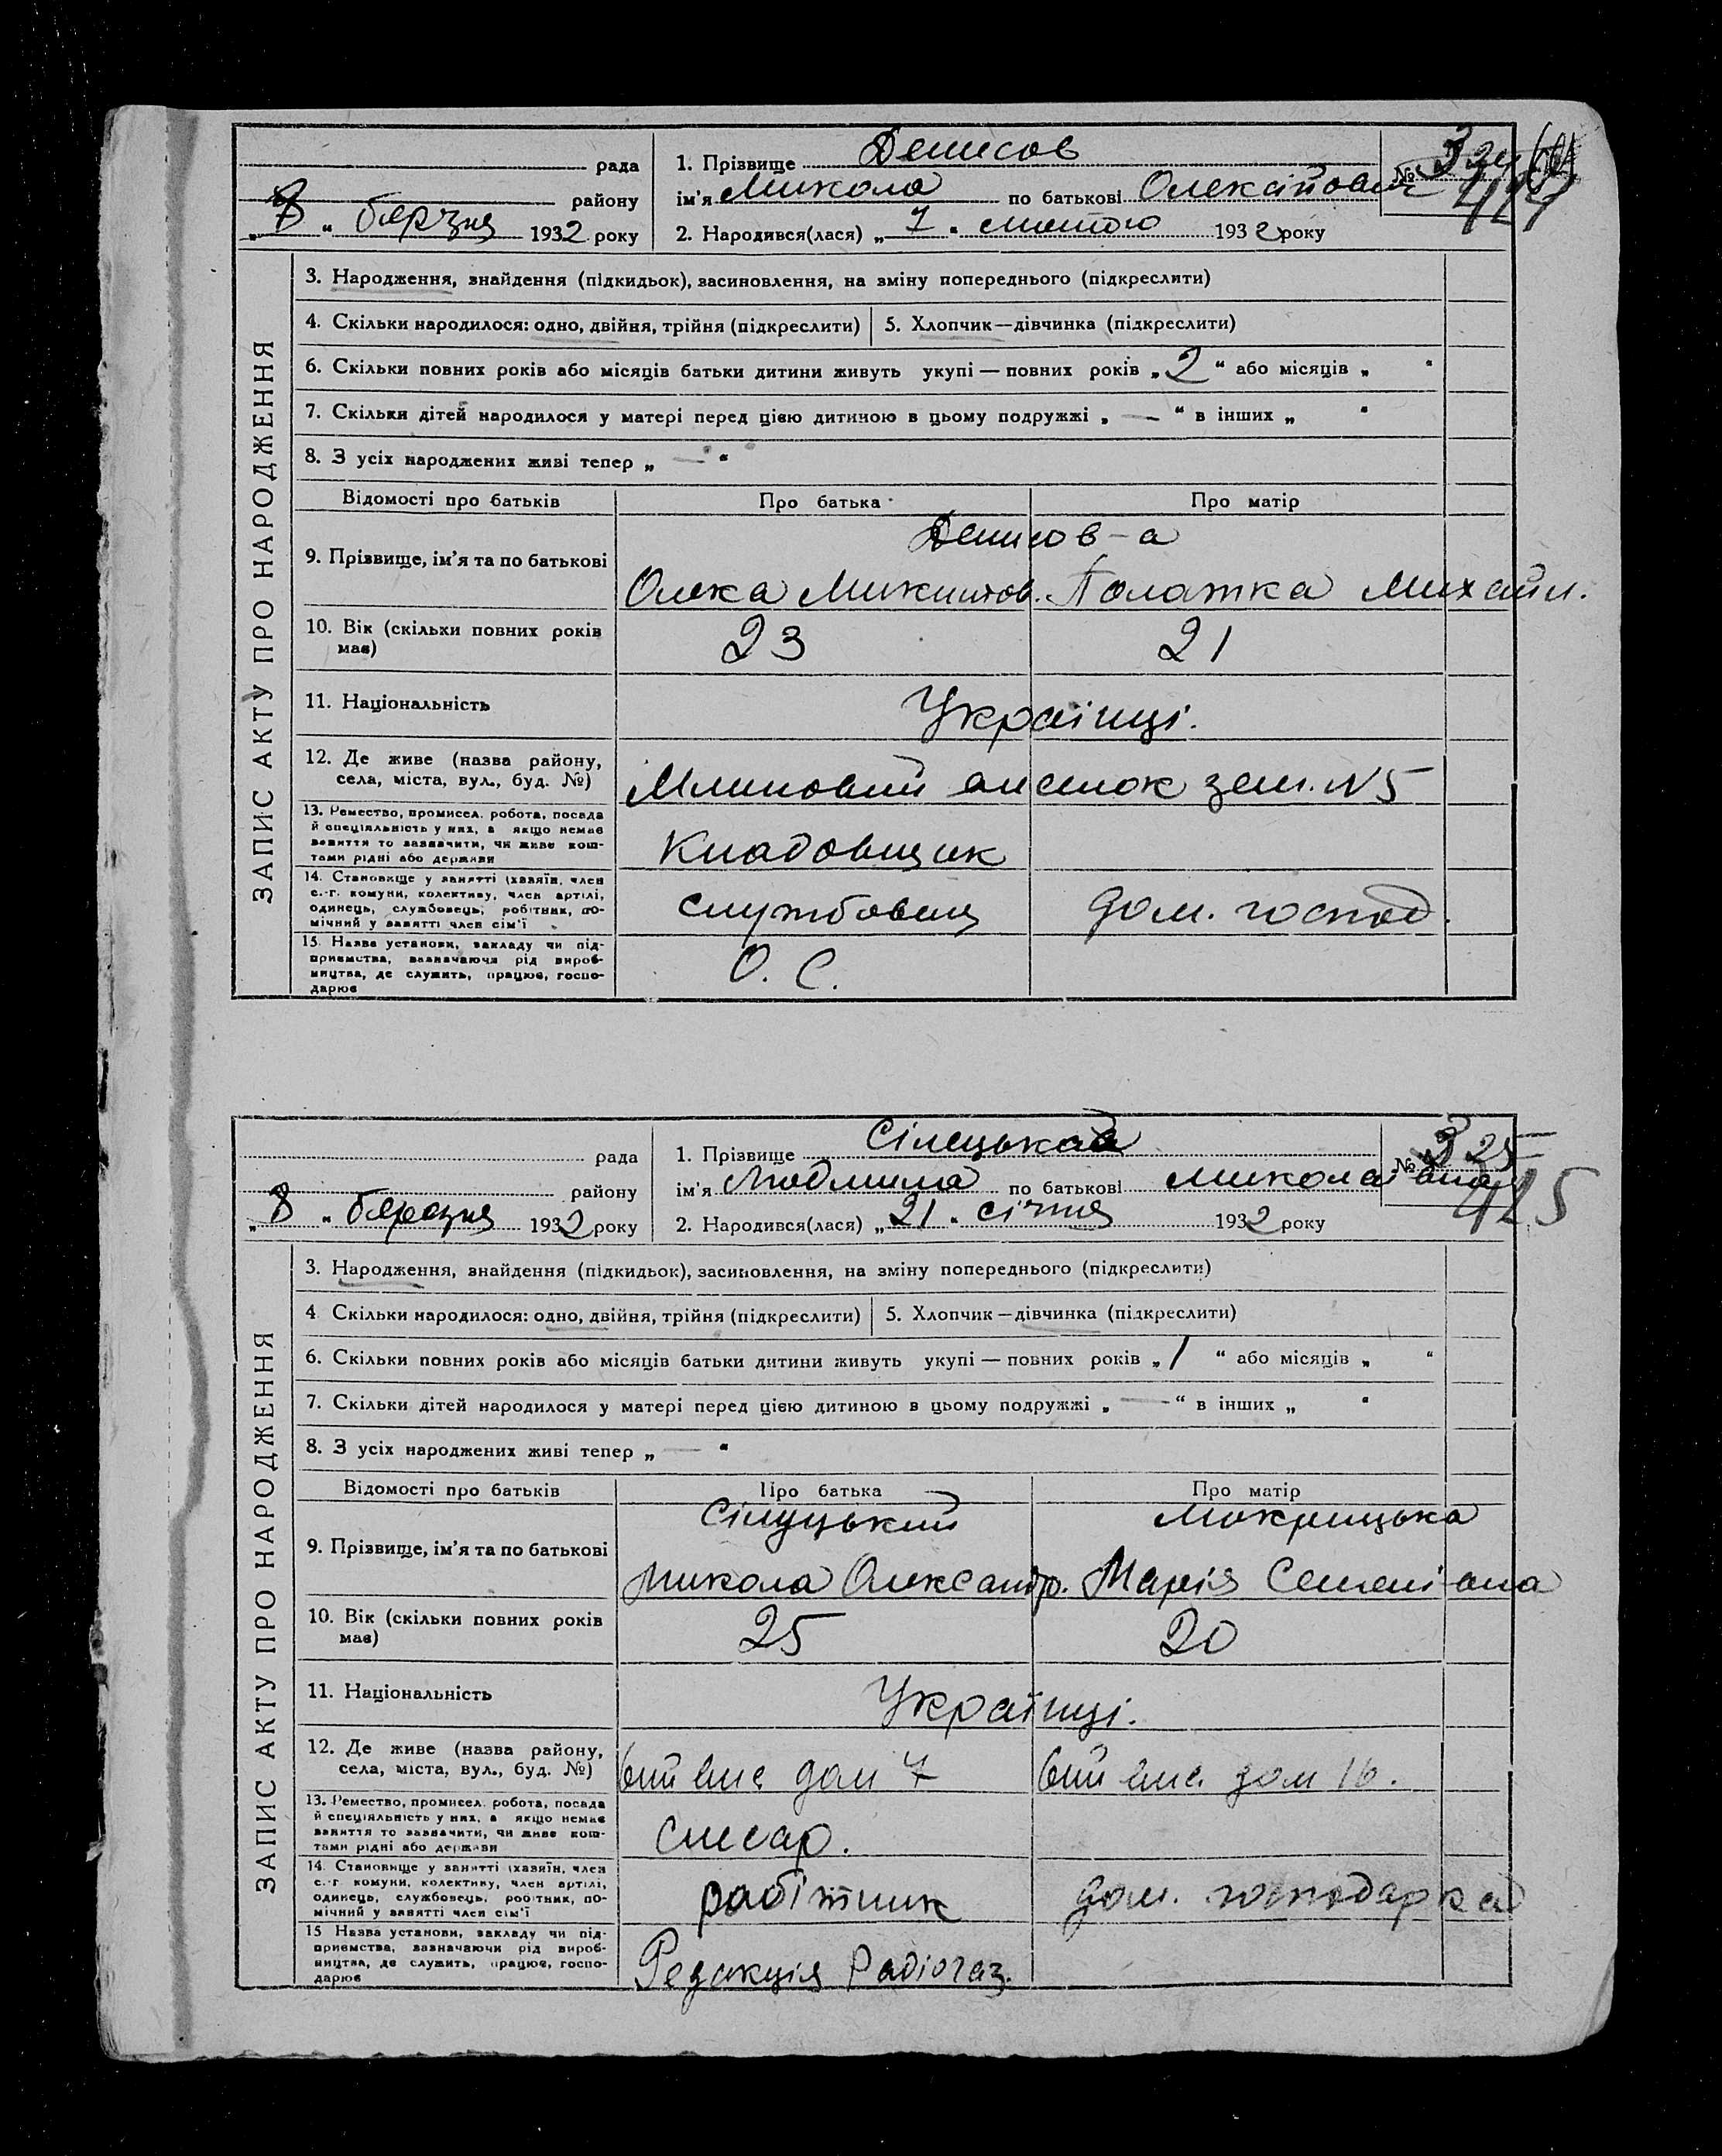 рада
району
„8“ березня 1932 року
1. Прізвище Денисов
ім'я Микола по батькові Олексійович
2. Народився(лася) „7“ лютого 1932 року
№ 324
414
ЗАПИС АКТУ ПРО НАРОДЖЕННЯ
3. Народження, знайдення (підкидьок), засиновлення, на зміну попереднього (підкреслити)
4. Скільки народилося: одно, двійня, трійня (підкреслити) 5. Хлопчик—дівчинка (підкреслити)
6. Скільки повних років або місяців батьки дитини живуть укупі — повних років „2“ або місяців „ “
7. Скільки дітей народилося у матері перед цією дитиною в цьому подружжі „ — “ в інших „ “
8. З усіх народжених живі тепер „ — “
Відомості про батьків Про батька Про матір
Денисов-а
9. Прізвище, ім'я та по батькові
Олекса Микитов. Палажка Михайл.
10. Вік (скільки повних років має) 23 21
11. Національність Українці.
12. Де живе (назва району, села, міста, вул., буд. №) Млиновий зем. №5
13. Ремество, промисел, робота, посада й спеціяльність у них, а якщо немає заняття то зазначити, чи живе коштами рідні або держави
Кладовщик
14. Становище у занятті (хазяїн, член с.-г. комуни, колективу, член артілі, одинець, службовець, робітник, помічний у занятті член сім'ї
службовец дом. господ.
15. Назва установи, закладу чи підприємства, зазначаючи рід виробництва, де служить, працює, господарює
О. С.
рада
району
„8“ березня 1932 року
1. Прізвище Сілецька
ім'я Людмила по батькові Миколаївна
2. Народився(лася) „21“ січня 1932 року
№ 325
415
ЗАПИС АКТУ ПРО НАРОДЖЕННЯ
3. Народження, знайдення (підкидьок), засиновлення, на зміну попереднього (підкреслити)
4 Скільки народилося: одно, двійня, трійня (підкреслити) 5. Хлопчик—дівчинка (підкреслити)
6. Скільки повних років або місяців батьки дитини живуть укупі — повних років „1“ або місяців „ “
7. Скільки дітей народилося у матері перед цією дитиною в цьому подружжі „ — “ в інших „ “
8. З усіх народжених живі тепер „ — “
Відомості про батьків Про батька Про матір
Сілецький Мокрицька
9. Прізвище, ім'я та по батькові
Микола Олександр. Марія Семенівна
10. Вік (скільки повних років має) 25 20
11. Національність Українці.
12. Де живе (назва району, села, міста, вул., буд. №) дом 7 дом 16.
13. Ремество, промисел, робота, посада й спеціяльність у них, а якщо немає заняття то зазначити, чи живе коштами рідні або держави
слюсар.
14. Становище у занятті (хазяїн, член с.-г. комуни, колективу, член артілі, одинець, службовець, робітник, помічний у занятті член сім'ї
робітник дом. господарка
15 Назва установи, закладу чи підприємства, зазначаючи рід виробництва, де служить, працює, господарює
Редакція Радіогаз.